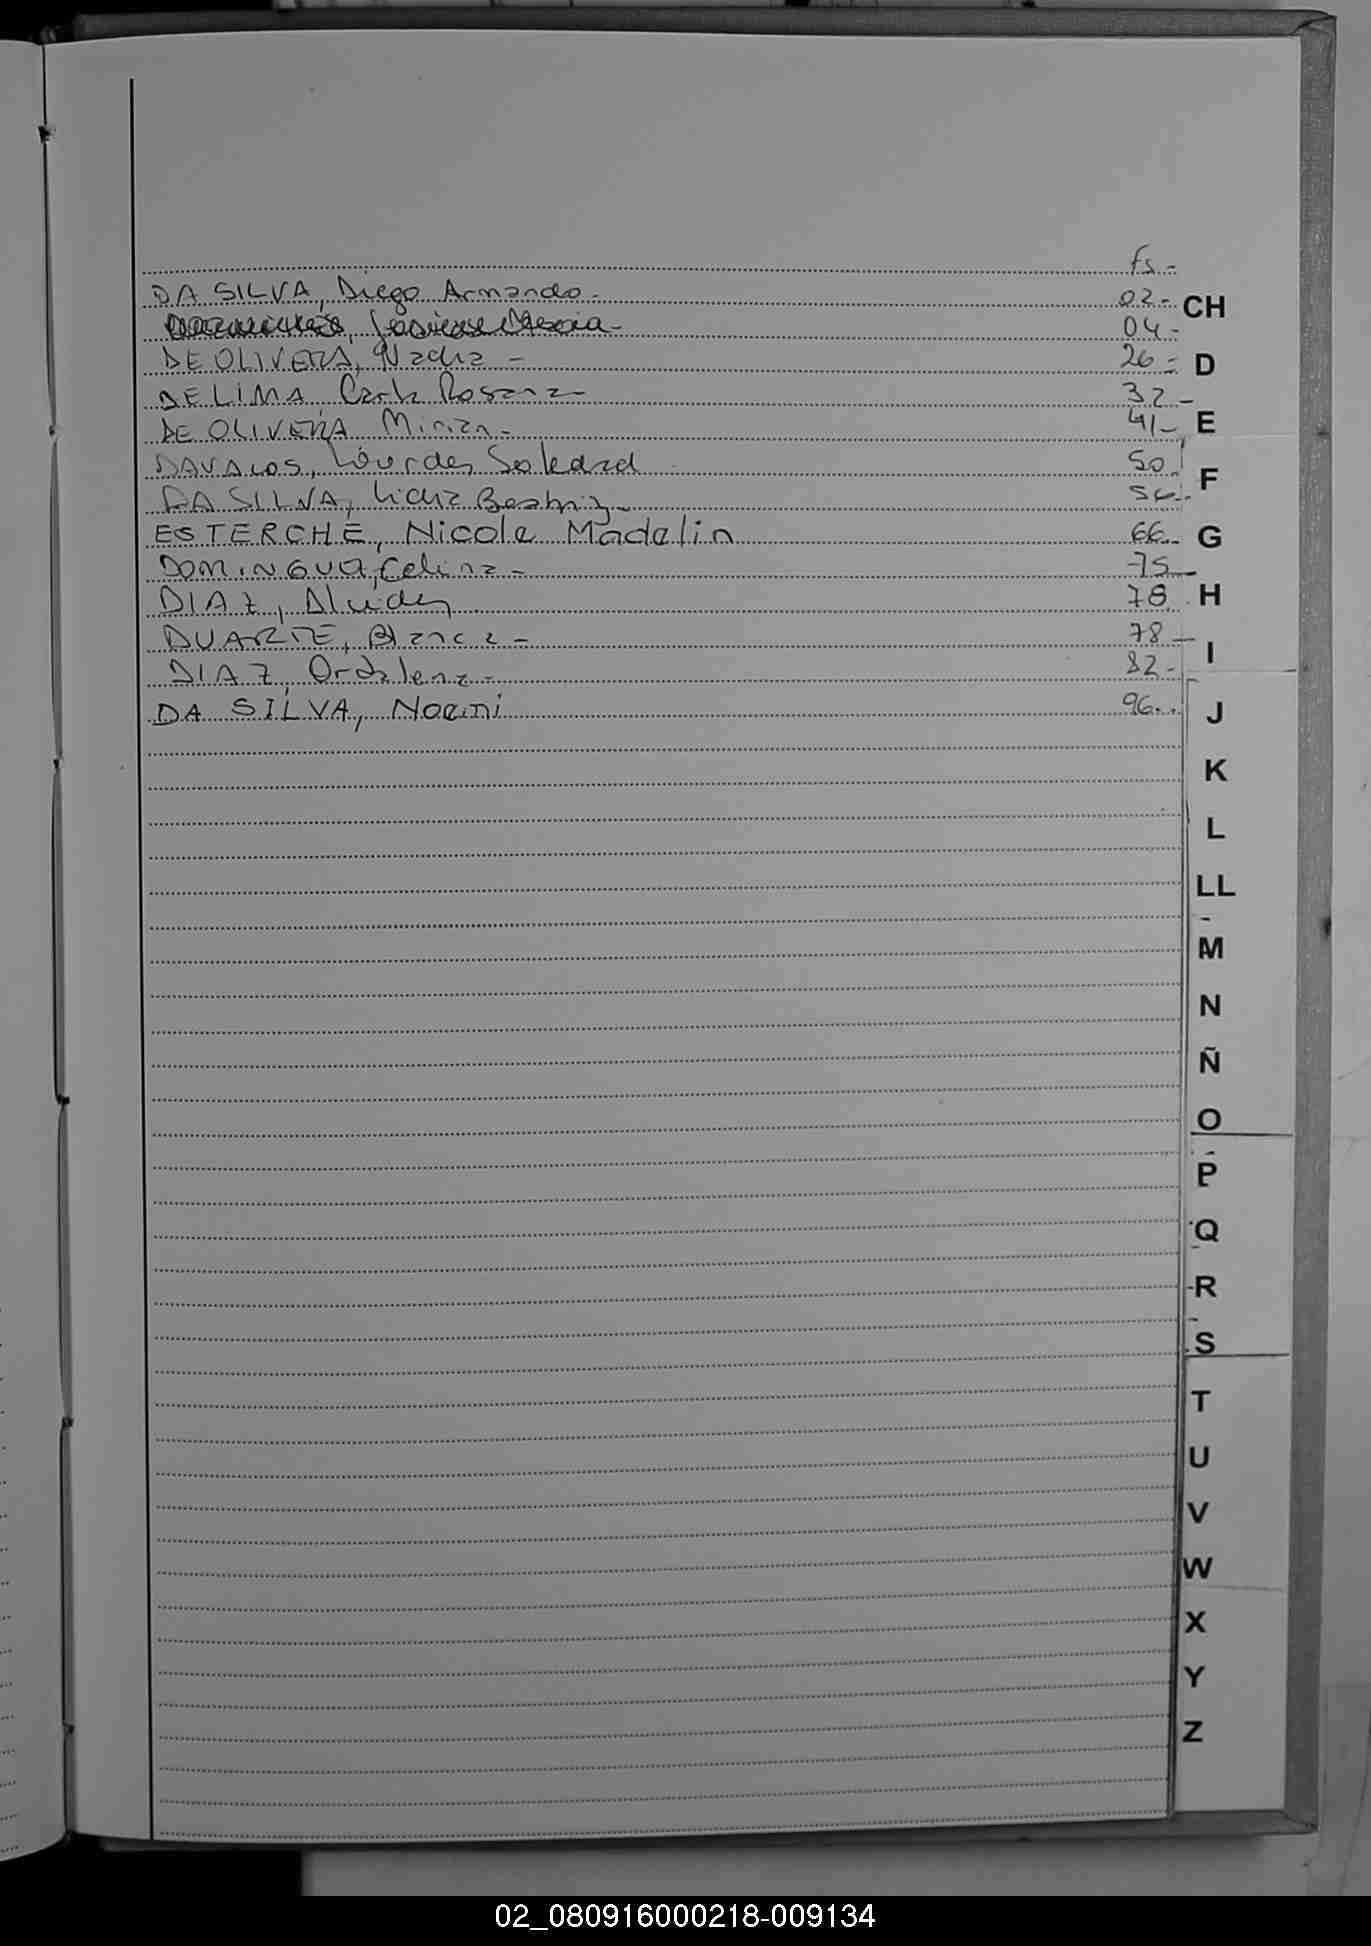 fs-
DA SILVA, Diego Armando- 02-
04-
DE OLIVERA, Nadia - 26-
DE LIMA Carla Rosana- 32-
DE OLIVERA Mirian- 41-
DAVALOS, Lourdes Soledad 50
DA SILVA, Lidia Beatriz-
ESTERCHE, Nicole Madelin 66
DOMINGUA, Celina- 75-
DIAZ, 78
DUARTE, Blanca- 78-
DIAZ, Ordalena- 82-
DA SILVA, Noemi 96
CH
D
E
F
G
H
I
J
K
L
LL
M
N
Ñ
O
P
Q
R
S
T
U
V
W
X
Y
Z
02_080916000218-009134